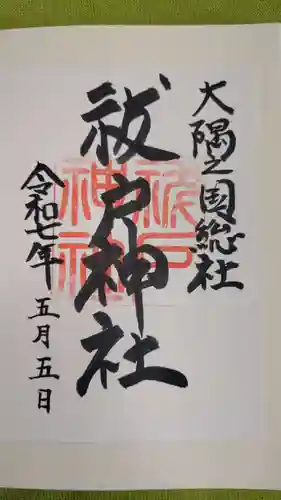 大隅之国総社
祓戸神社
祓戸
神社
令和七年五月五日